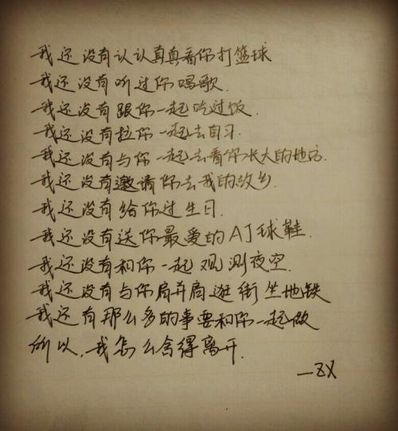 我还没有认认真真看你打篮球
我还没有听过你唱歌.
我还没有跟你一起吃过饭.
我还没有拉你一起去自习.
我还没有与你一起去看你长大的地方
我还没有邀请你去我的故乡
我还没有给你过生日.
我还没有送你最爱的AJ球鞋.
我还没有和你一起观测夜空.
我还没有与你肩并肩逛街坐地铁
我还有那么多的事要和你一起做
所以,我怎么舍得离开.
—ZX